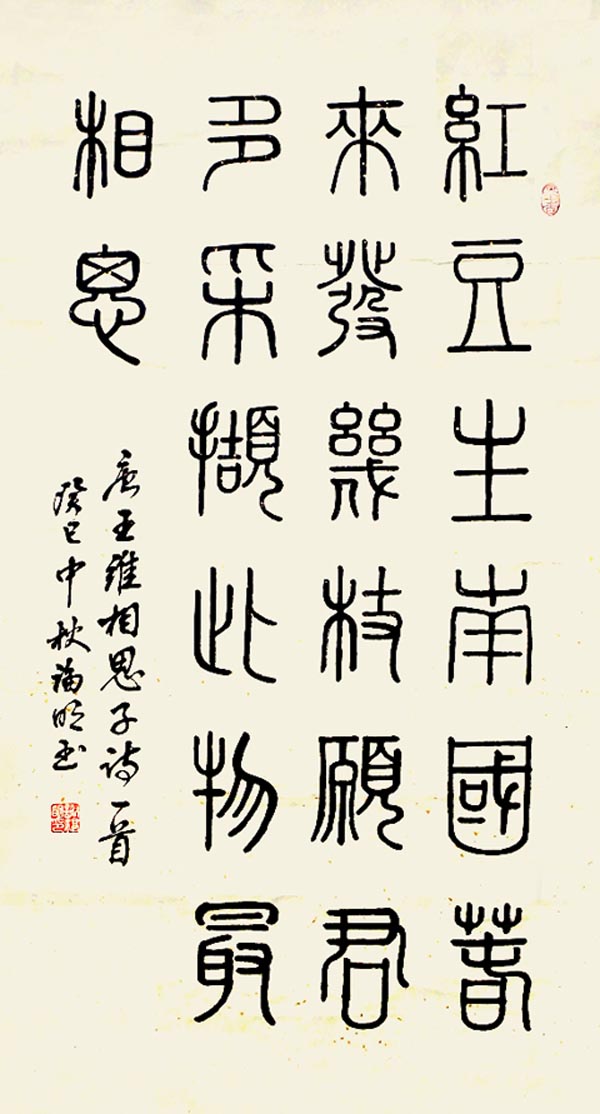 紅豆生南國春
來發幾枝願君
多采擷此物最
相思
唐王維相思子詩一首
癸巳中秋